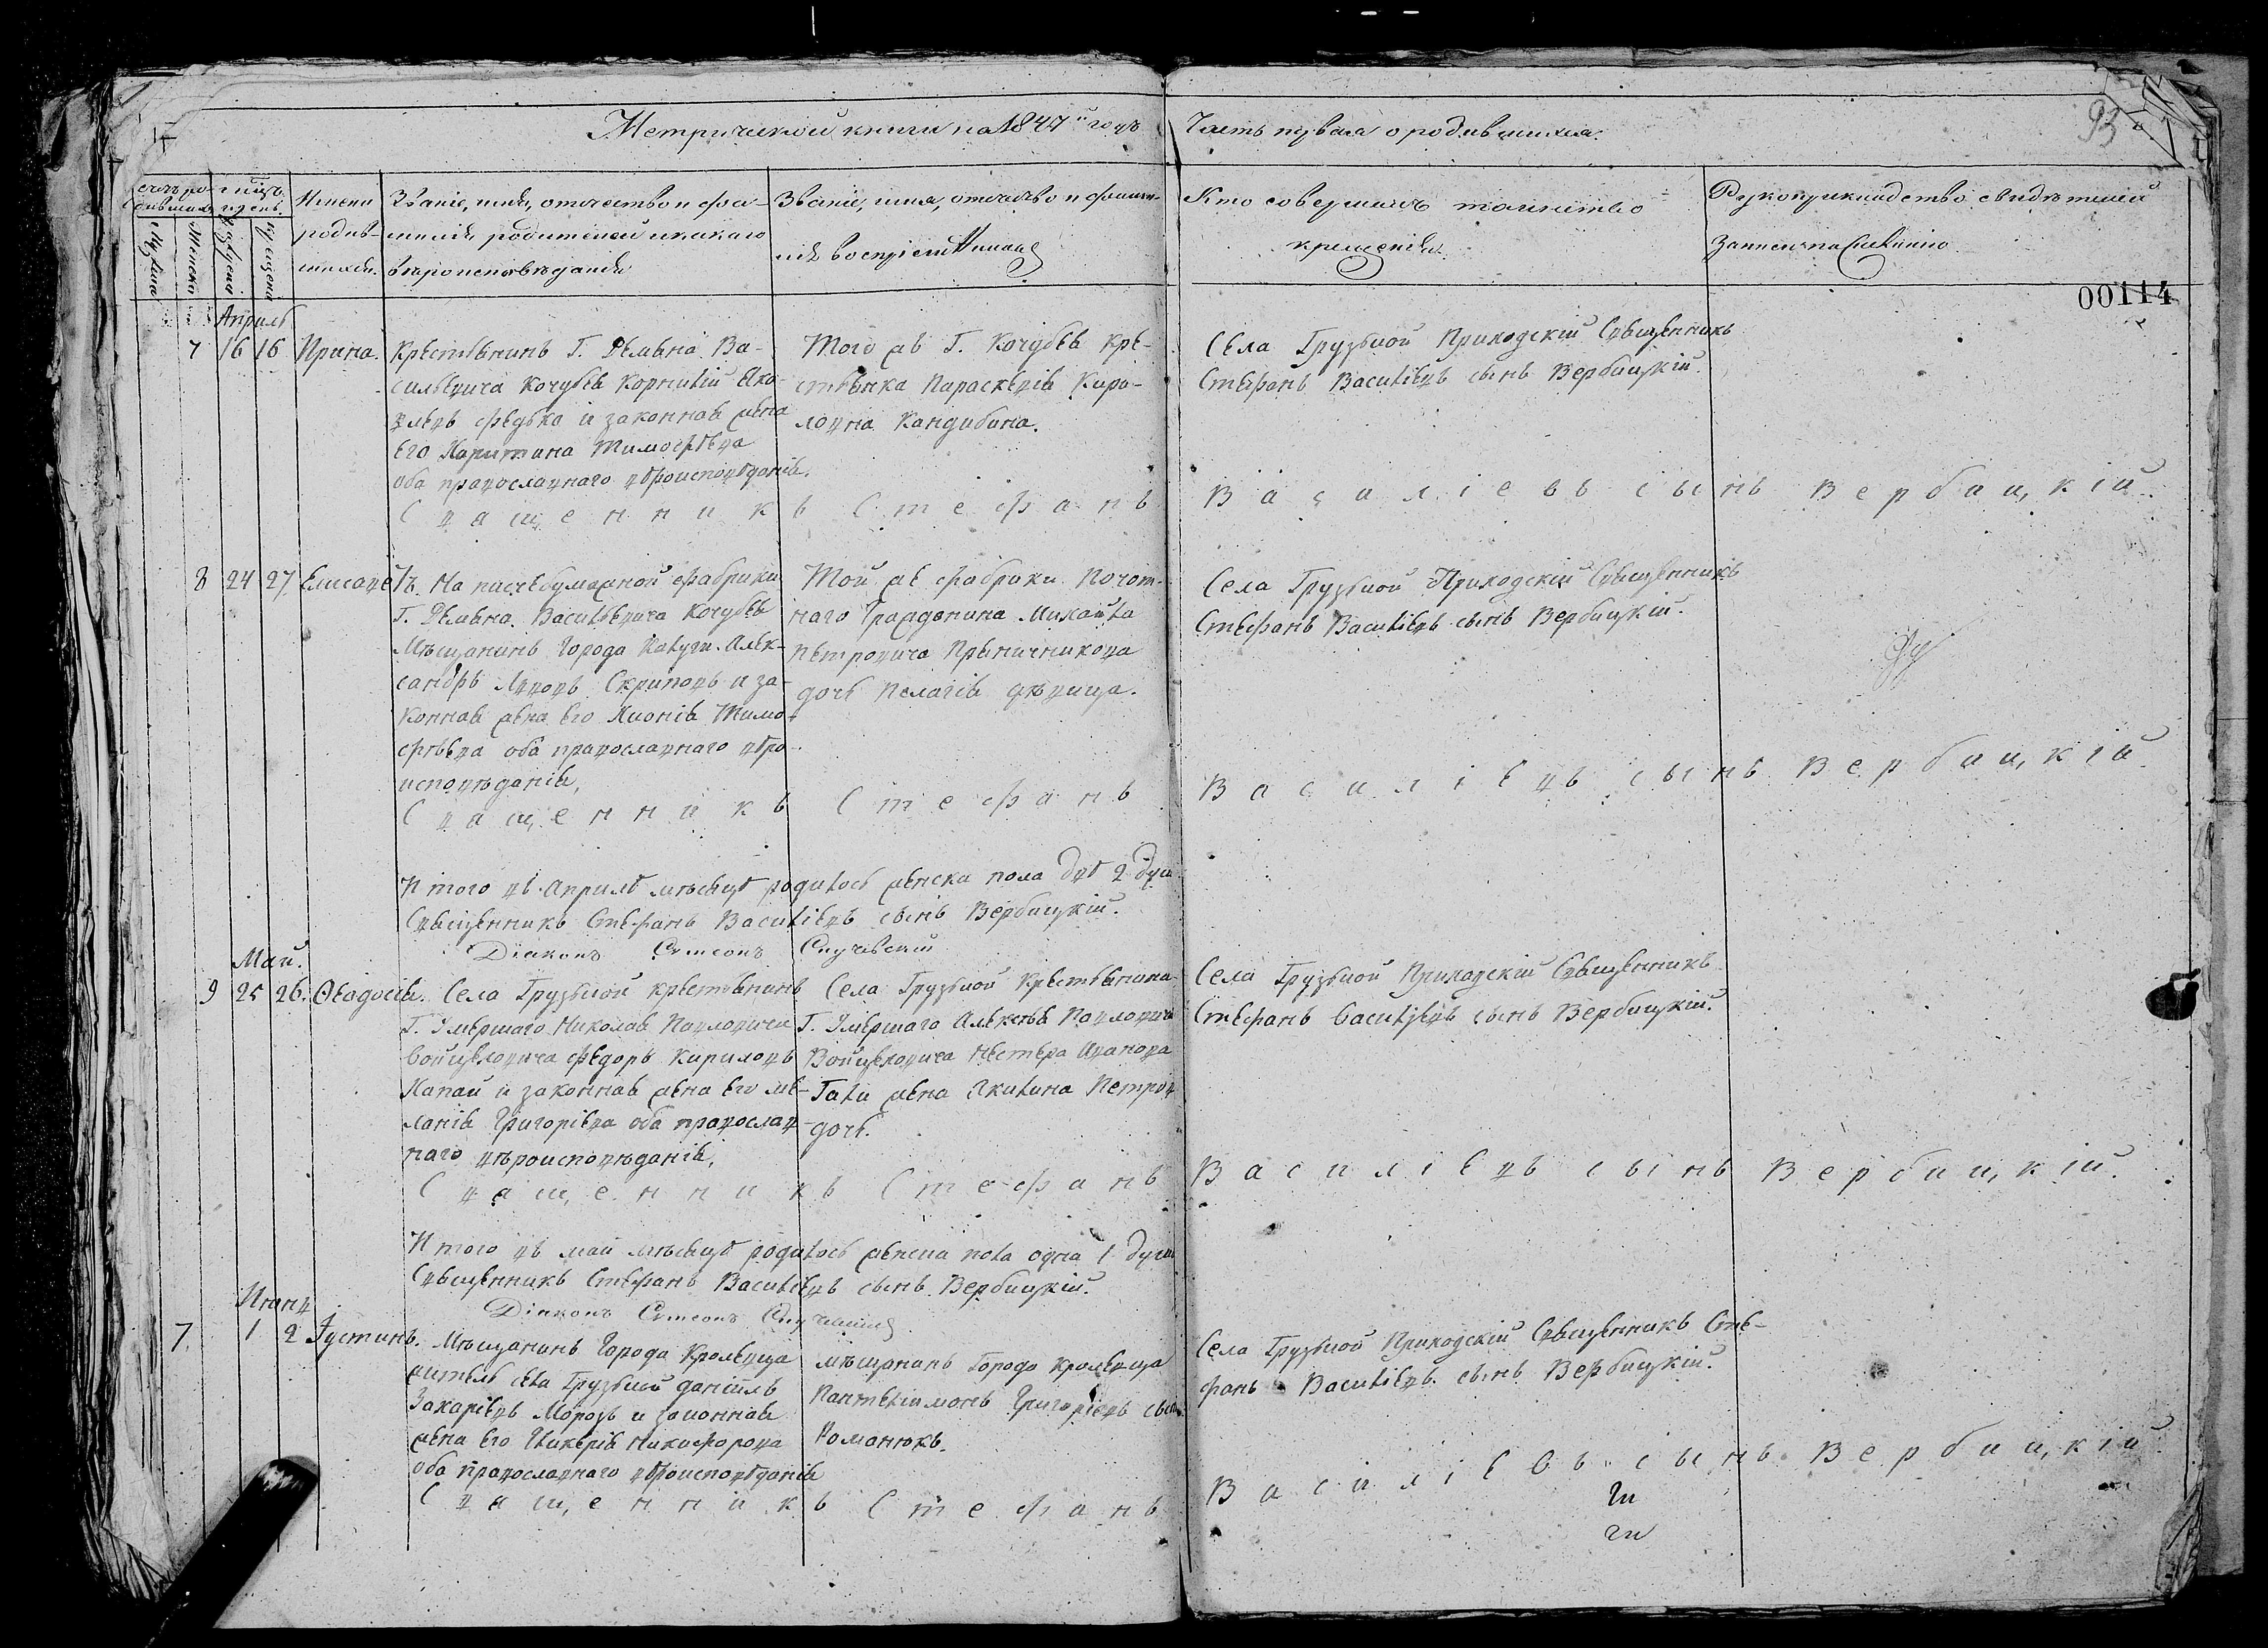 Метрической книги на 1847й годъ Часть первая о родившихся.
93
Счетъ родившихся
Мужеска
Женска
Мѣсяцъ и день.
рожденія
крещенія
Имена
родив-
шихся.
Званіе, имя, отчество и фа-
милія родителей и какого
вѣроисповѣданія
Званіе, имя, отчество и фами-
лія воспріемниковъ
Кто совершалъ таинство
крещенія.
Рукоприкладство свидѣтелей
записи по желанію
00114
Апрель
7 16 16 Ирина.
Крестянинъ Г. Демяна Ва-
сильевича Кочубея Корнилій Яко-
влевъ Федько и законная жена
его Харитина Тимофѣева
оба православнаго вѣроисповѣданія.
Того же Г. Кочубея кре-
стянка Параскевія Кири-
ловна Кандибина.
Села Грузской Приходскій Священникъ
Стефанъ Василіевъ сынъ Вербицкій.
Священникъ Стефанъ Василіевъ сынъ Вербицкій.
8 24 27 Елисаветъ.
На писчебумажной фабрики
Г. Демяна Васильевича Кочубея
Мѣщанинъ Города Калуги Алек-
сандръ Львовъ Скриповъ и за-
конная жена его Хионія Тимо-
фѣева оба православнаго вѣро-
исповѣданія,
Той же фабрики Почот-
наго Гражданина Михайла
Петровича Пряничникова
дочь Пелагія дѣвица.
Села Грузской Приходскій Священникъ
Стефанъ Василіевъ сынъ Вербицкій.
Священникъ Стефанъ Василіевъ сынъ Вербицкій.
Итого въ Априлѣ мѣсяцѣ родилось женска пола двѣ 2 душ
Священникъ Стефанъ Василіевъ сынъ Вербицкій.
Діаконъ Симеонъ
Май.
9 25 26. Ѳеодосія.
Села Грузской крестянинъ
Г. Умершаго Николая Павловича
Войцеховича Федоръ Кириловъ
Хапай и законная жена его Ме-
ланія Григоріева оба православ-
наго вѣроисповѣданія,
Села Грузской Крестянина
Г. Умершаго Алексѣя Павловича
Войцеховича Нестера Иванова
Гали жена Акилина Петров
дочь.
Села Грузской Приходскій Священникъ
Стефанъ Василіевъ сынъ Вербицкій.
Священникъ Стефанъ Василіевъ сынъ Вербицкій.
Итого въ май мѣсяцѣ родилось женска пола одна 1 душа
Священникъ Стефанъ Василіевъ сынъ Вербицкій.
Діаконъ Симеонъ
7. 1 2 Іустинъ.
Мѣщанинъ Города Кролевца
житель села Грузской Даніилъ
Захаріевъ Морозъ и законная
жена его Гликерія Никифорова
оба православнаго вѣроисповѣданія
Мѣщанинъ Города Кролевца
Пантелеимонъ Григоріевъ сынъ
Романюкъ.
Села Грузской Приходскій Священникъ Сте-
фанъ Василіевъ сынъ Вербицкій.
Священникъ Стефанъ Василіевъ сынъ Вербицкій.